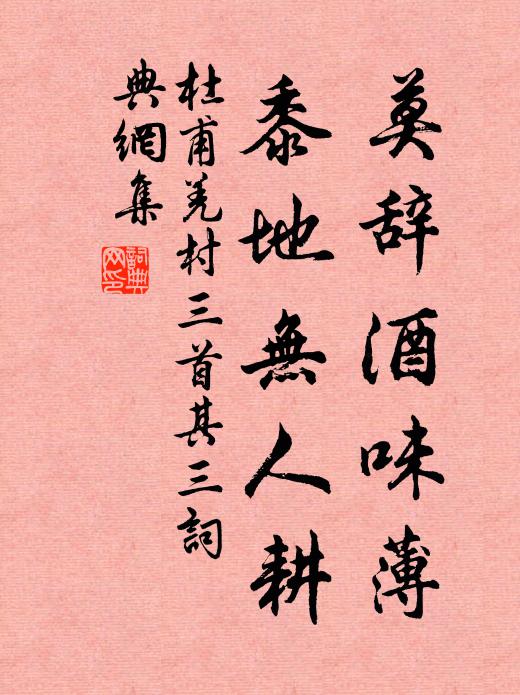 莫辞酒味薄
黍地無人耕
杜甫羌村三首其三詞
典網集
詞典网印